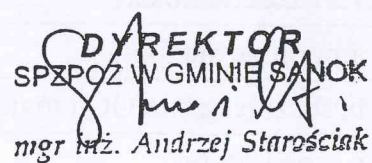 DYREKTOR
SPZPOZ W GMINIE SANOK
mgr inż. Andrzej Starościak